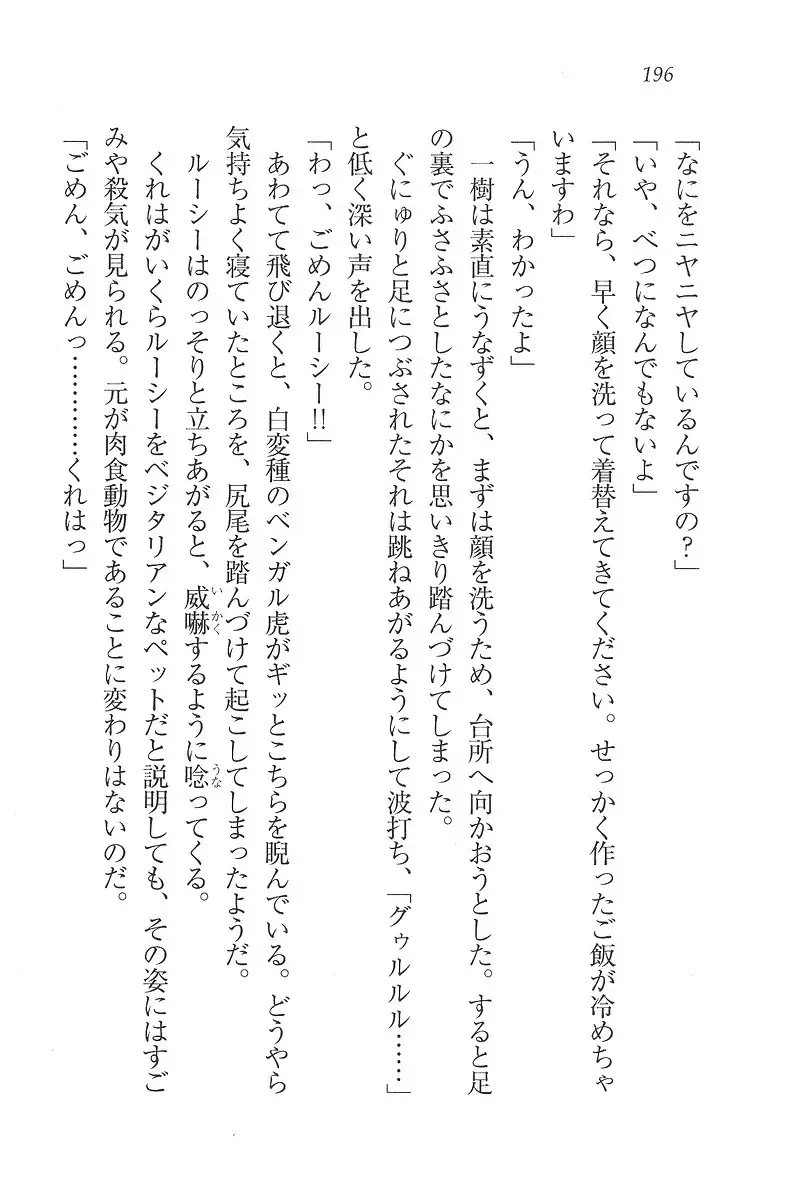 196
「なにをニヤニヤしているんですの?」
「いや、べつになんでもないよ」
「それなら、早く顔を洗って着替えてきてください。せっかく作ったご飯が冷めちゃ
いますわ」
「うん、わかったよ」
　一樹は素直にうなずくと、まずは顔を洗うため、台所へ向かおうとした。すると足
の裏でふさふさとしたなにかを思いきり踏んづけてしまった。
　ぐにゅりと足につぶされたそれは跳ねあがるようにして波打ち、「グゥルルル……」
と低く深い声を出した。
「わっ、ごめんルーシー!!」
　あわてて飛び退くと、白変種のベンガル虎がギッとこちらを睨んでいる。どうやら
気持ちよく寝ていたところを、尻尾を踏んづけて起こしてしまったようだ。
　ルーシーはのっそりと立ちあがると、威嚇するように唸ってくる。
　くれはがいくらルーシーをベジタリアンなペットだと説明しても、その姿にはすご
みや殺気が見られる。元が肉食動物であることに変わりはないのだ。
「ごめん、ごめんっ…………くれはっ」